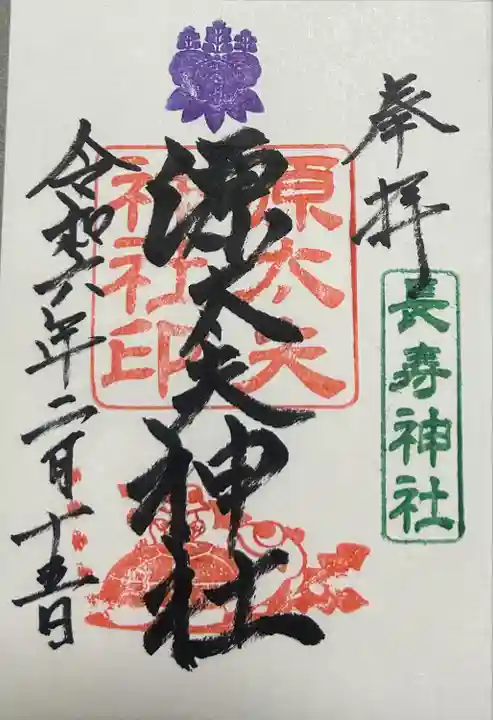 奉拝
長寿神社
源太夫神社
原太夫
神社印
令和六年二月十五日